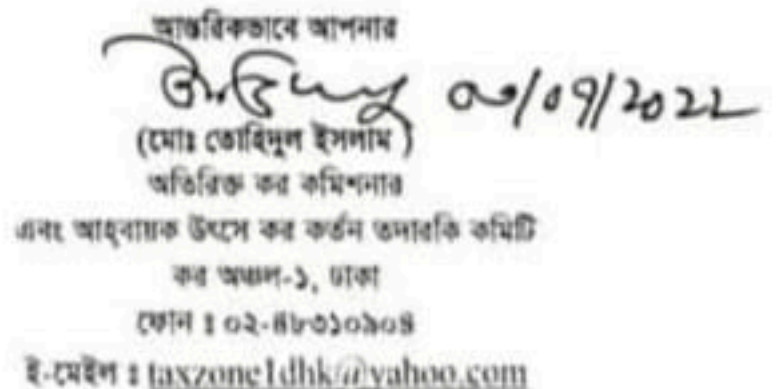 আন্তরিকভাবে আপনার
০৩/০৭/২০২২
(মোঃ তোহিদুল ইসলাম )
অতিরিক্ত কর কমিশনার
এবং আহ্বায়ক উৎসে কর কর্তন তদারকি কমিটি
কর অঞ্চল-১, ঢাকা
ফোন ঃ ০২-৪৮৩১০৯০৪
ই-মেইল ঃ taxzone1dhk@yahoo.com